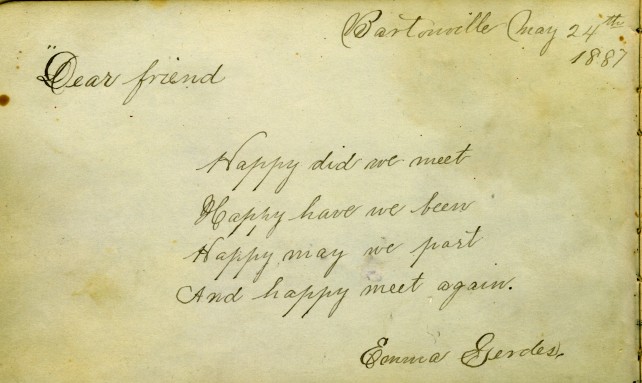 Bartonville May 24th
1887
"Dear friend
Happy did we meet
Happy have we been
Happy may we part
And happy meet again.
Emma Gerdes.